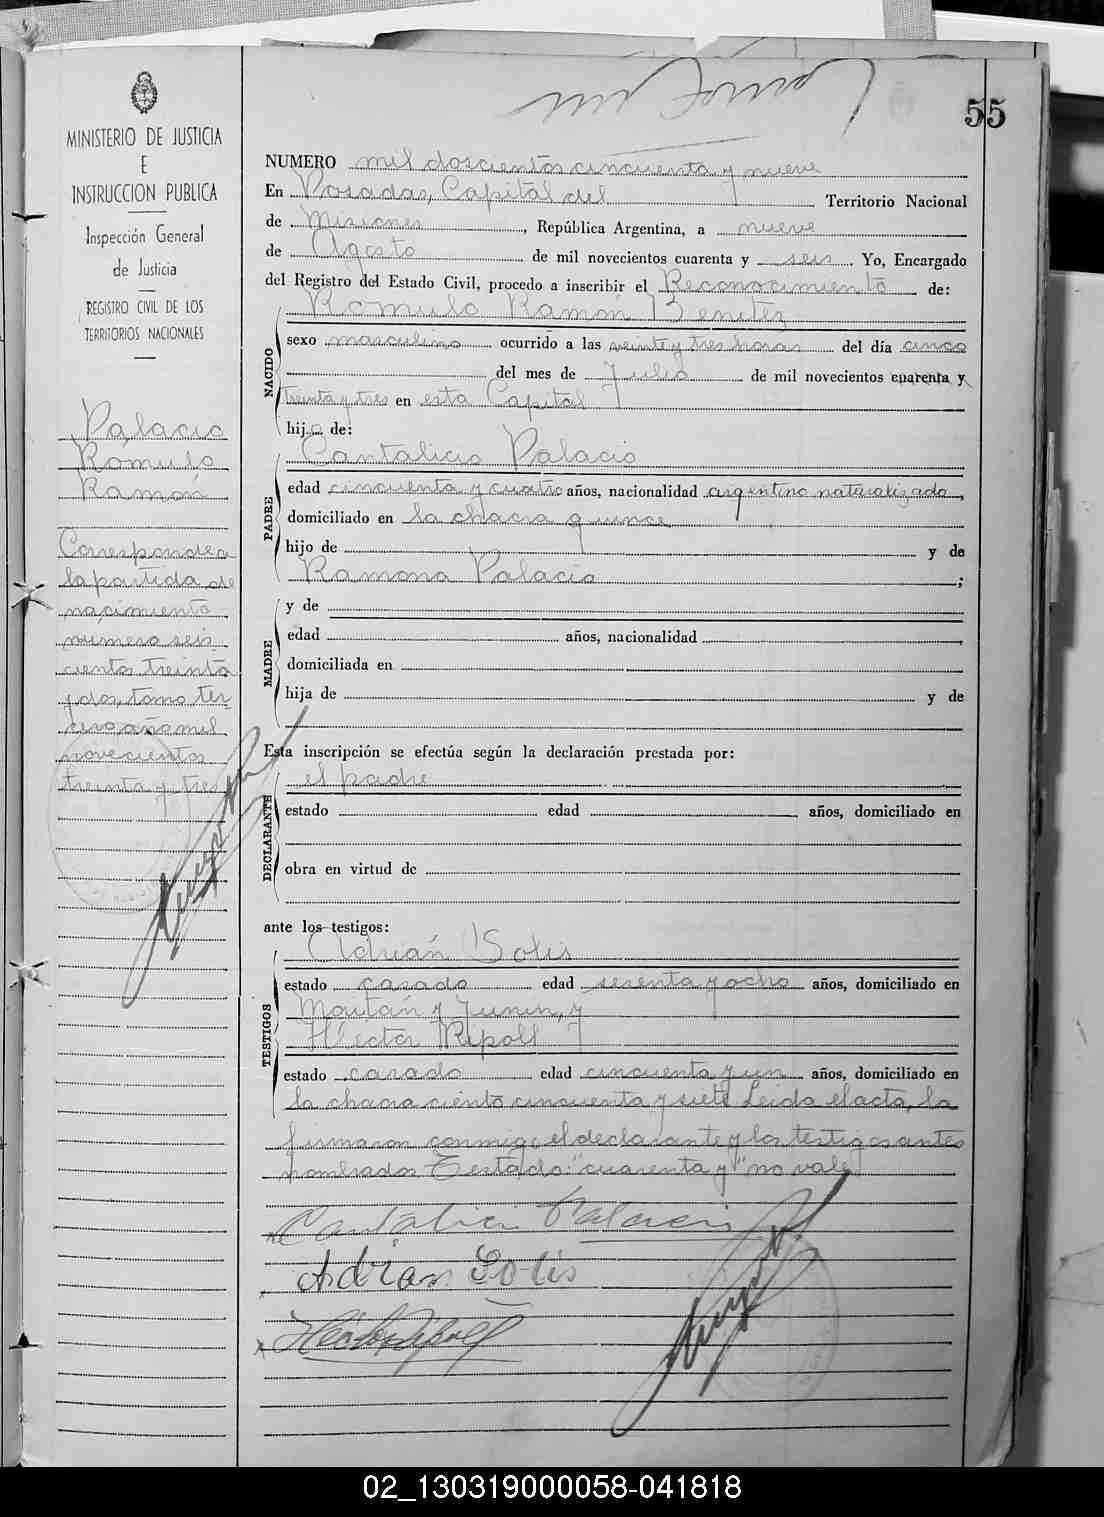 55
MINISTERIO DE JUSTICIA
E
INSTRUCCION PUBLICA
Inspección General
de Justicia
REGISTRO CIVIL DE LOS
TERRITORIOS NACIONALES
Palacio
Romulo
Ramón
Corresponde a
la partida de
nacimiento
número seis
cientos treinta
y dos, tomo ter
cero año mil
novecientos
treinta y tres
NUMERO mil doscientos cincuenta y nueve
En Posadas, Capital del Territorio Nacional
de Misiones, República Argentina, a nueve
de Agosto de mil novecientos cuarenta y seis Yo, Encargado
del Registro del Estado Civil, procedo a inscribir el Reconocimiento de:
Romulo Ramón Benitez
NACIDO
sexo masculino ocurrido a las veinte y tres horas del día cinco
del mes de Julio de mil novecientos cuarenta y
treinta y tres en esta Capital
hijo de:
Cantalicio Palacio
PADRE
edad cincuenta y cuatro años, nacionalidad argentino naturalizado,
domiciliado en la chacra quince
hijo de y de
Ramona Palacio ;
MADRE
y de
edad años, nacionalidad
domiciliada en
hija de y de
Esta inscripción se efectúa según la declaración prestada por:
el padre
DECLARANTE
estado edad años, domiciliado en
obra en virtud de
ante los testigos:
Adrián Solis
TESTIGOS
estado casado edad sesenta y ocho años, domiciliado en
y Junin, y
Héctor Ripoll
estado casado edad cincuenta y un años, domiciliado en
la chacra ciento cincuenta y siete Leida el acta, la
firmaron conmigo el declarante y los testigos antes
nombrados Testado: "cuarenta y" no vale
Cantalicio Palacio
Adrian Solis
Héctor Ripoll
02_130319000058-041818